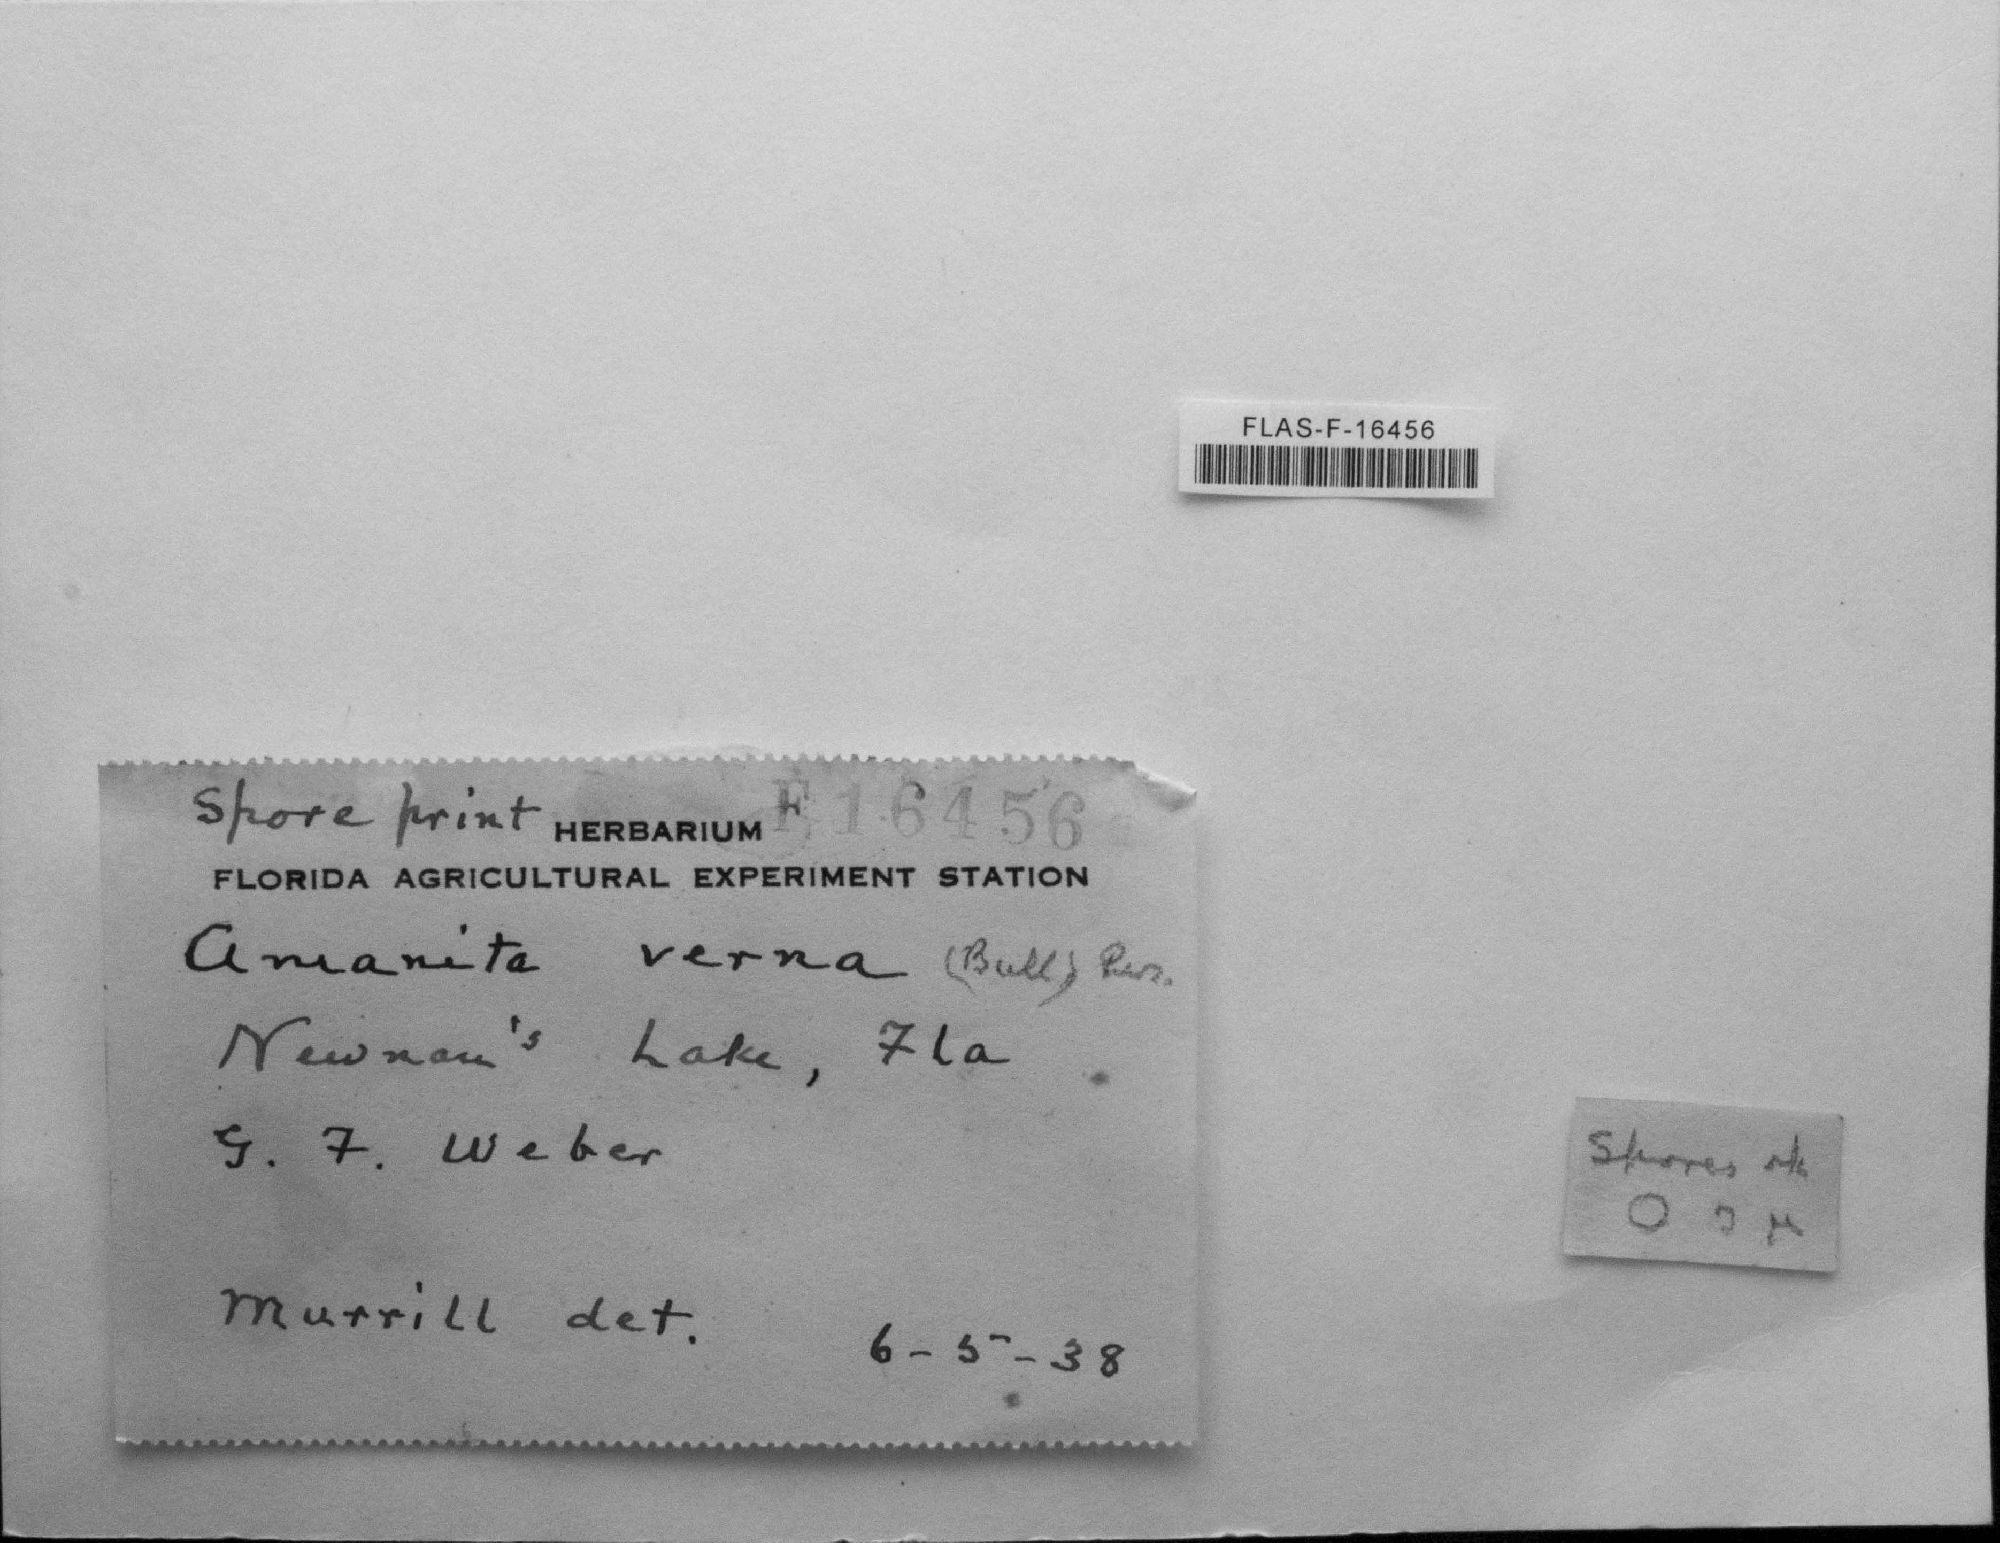 FLAS-F-16456
Spore print HERBARIUM F16456
FLORIDA AGRICULTURAL EXPERIMENT STATION
Amanita verna (Bull) Pers.
Newnan's Lake, Fla
G. F. Weber
Murrill det.
6-5-38
Spores ok
μ